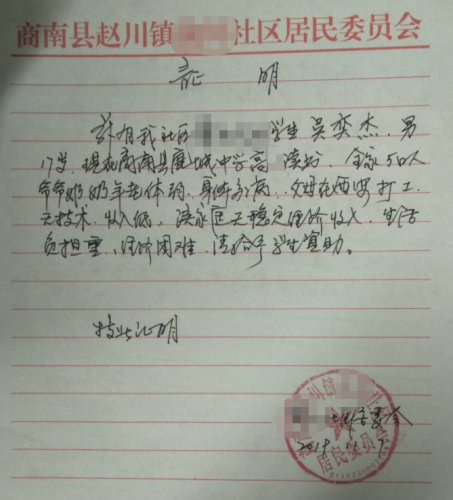 商南县赵川镇 社区居民委员会
证 明
兹有我社区 学生 吴奕杰，男
17岁，现在商南县鹿城中学高 读书，全家5口人
爷爷奶奶年老体弱，身体多病，父母在西安打工
无技术，收入低，该家庭无稳定经济收入，生活
负担重，经济困难，请给予学生资助。
特此证明
居委会
2019.
川镇
居民委员